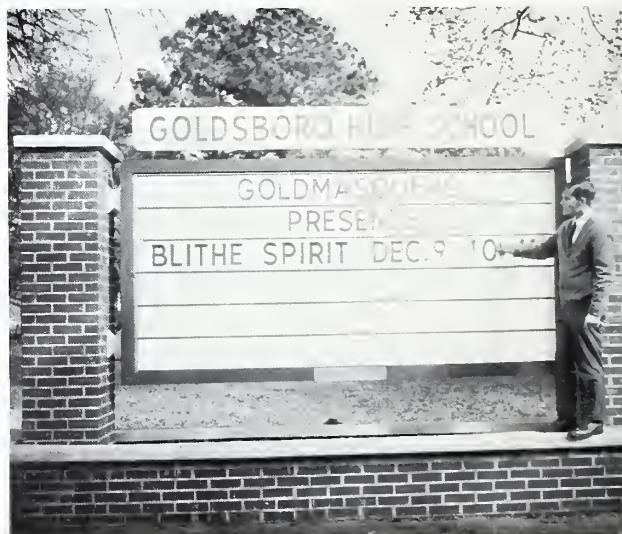 GOLDSBORO HIGH SCHOOL
GOLDMASQUERS
PRESENT
BLITHE SPIRIT DEC. 9 10